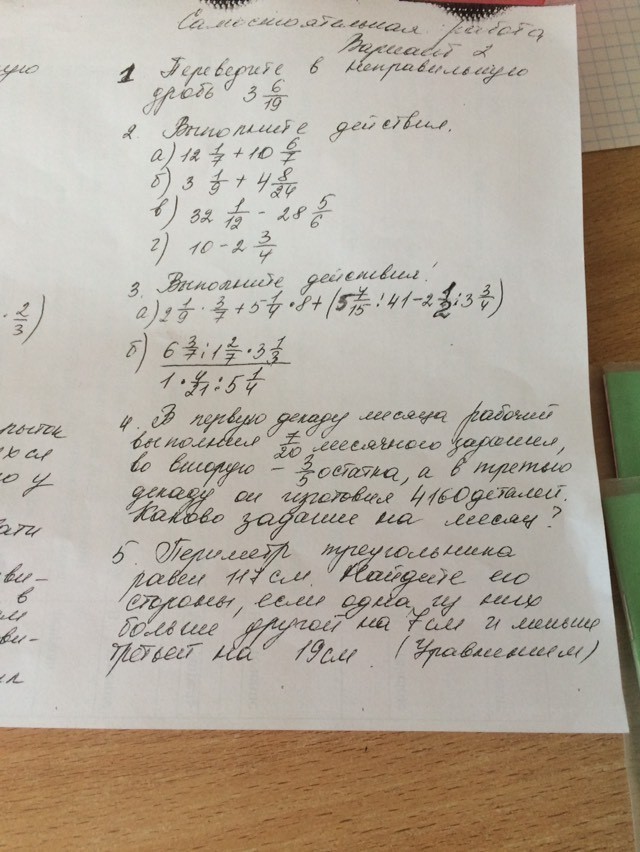 Самостоятельная работа
Вариант 2
1 Переведите в неправильную
дробь 3 6/19
2. Выполните действия.
а) 12 1/7 + 10 6/7
б) 3 1/9 + 4 8/24
в) 32 1/12 - 28 5/6
г) 10 - 2 3/4
3. Выполните действия!
а) 2 1/9 · 3/7 + 5 1/4 · 8 + (5 7/15 : 41 - 2 1/2 : 3 3/4)
б) 6 3/7 : 1 2/7 · 3 1/3
1 · 4/21 : 5 1/4
4. В первую декаду месяца рабочий
выполнил 7/20 месячного задания,
во вторую - 3/5 остатка, а в третью
декаду он изготовил 4160 деталей.
Каково задание на месяц?
5. Периметр треугольника
равен 117 см. Найдите его
стороны, если одна из них
больше другой на 7 см и меньше
третьей на 19 см. (Уравнением)
· 2/3)